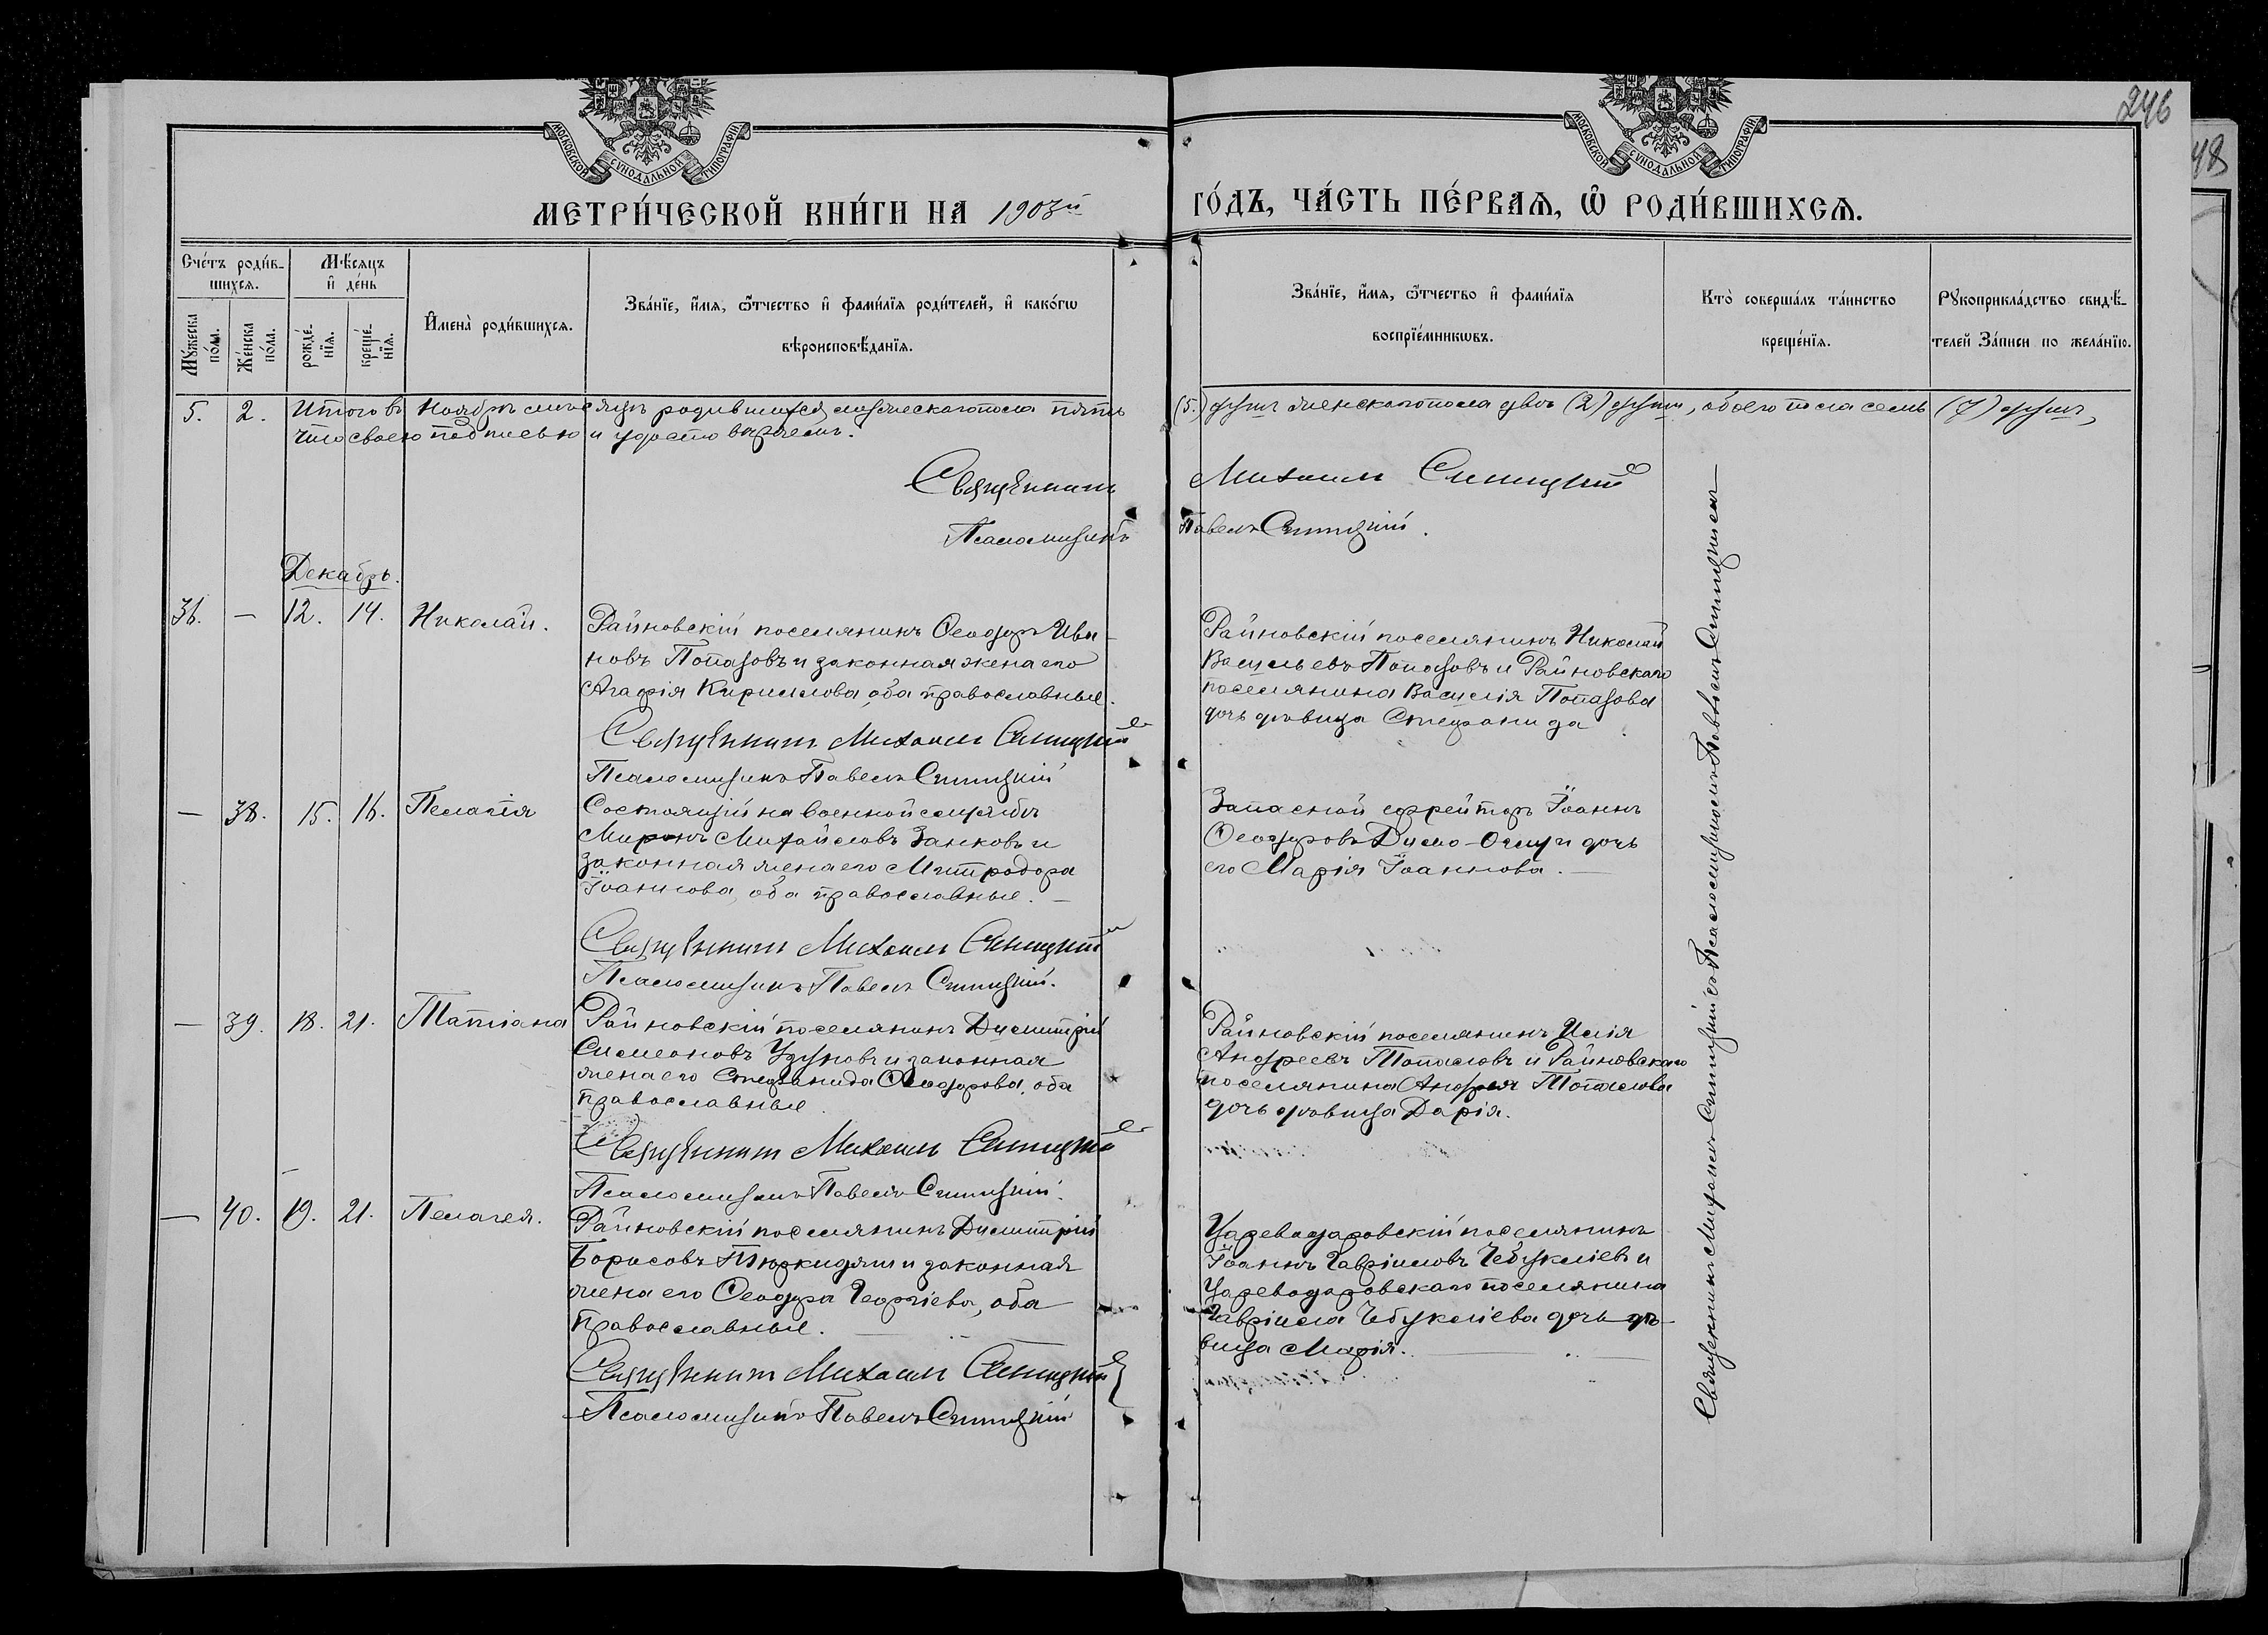 246
48
МОСКОВСКОЙ СУНОДАЛЬНОЙ ТИПОГРАФІИ
МОСКОВСКОЙ СУНОДАЛЬНОЙ ТИПОГРАФІИ
МЕТРИ́ЧЕСКОЙ КНИ́ГИ НА 1903й
ГО́ДЪ, ЧА́СТЬ ПЕ́РВАѦ, Ѡ҆ РОДИ́ВШИХСѦ.
Сче́тъ роди́в-
шихсѧ.
Мѣ́сѧцъ
и҆ де́нь
Мꙋ́жеска
по́ла.
Же́нска
по́ла.
рожде́-
нїѧ.
креще́-
нїѧ.
И҆мена̀ роди́вшихсѧ.
Зва́нїе, и҆́мѧ, ѻ҆́тчество и҆ фами́лїѧ роди́телей, и҆ како́гѡ
вѣроисповѣ́данїѧ.
Зва́нїе, и҆́мѧ, ѻ҆́тчество и҆ фами́лїѧ
воспрїе́мникѡвъ.
Кто̀ соверша́лъ та́инство
креще́нїѧ.
Рꙋкоприкла́дство свидѣ́-
телей За́писи по жела́нїю.
5. 2. Итого въ Ноябрѣ мѣсяцѣ родившихся мужескаго пола пять (5.) душъ женскаго пола двѣ (2) души, обоего пола семь (7) душъ,
что своею подписью и удостовѣряемъ.
Священникъ Михаилъ Синицкій
Псаломщикъ Павелъ Синицкій.
Декабрь.
36. — 12. 14. Николай. Райновскій поселянинъ Ѳеодоръ Ива-
новъ Попазовъ и законная жена его
Агафія Кириллова, оба православные.
Священникъ Михаилъ Синицкій
Псаломщикъ Павелъ Синицкій
Райновскій поселянинъ Николай
Васильевъ Попазовъ и Райновскаго
поселянина Василія Попазова
дочь дѣвица Стефанида
— 38. 15. 16. Пелагія Состоящій на военной службѣ
Миронъ Михайловъ Занковъ и
законная жена его Митродора
Іоаннова, оба православные. —
Священникъ Михаилъ Синицкій
Псаломщикъ Павелъ Синицкій.
Запасной ефрейторъ Іоаннъ
Ѳеодоровъ Димо-Оглу и дочь
его Марія Іоаннова. —
— 39. 18. 21. Татіана Райновскій поселянинъ Димитрій
Симеоновъ Узуновъ и законная
жена его Стефанида Ѳеодорова, оба
православные
Священникъ Михаилъ Синицкій
Псаломщикъ Павелъ Синицкій.
Райновскій поселянинъ Илія
Андреевъ Топаловъ и Райновскаго
поселянина Андрея Топалова
дочь дѣвица Дарія.
— 40. 19. 21. Пелагея. Райновскій поселянинъ Димитрій
Борисовъ Тюркиджи и законная
жена его Ѳеодора Георгіева, оба
православные.
Священникъ Михаилъ Синицкій
Псаломщикъ Павелъ Синицкій
Царевадаровскій поселянинъ
Іоаннъ Гавріиловъ Чебукліевъ и
Царевадаровскаго поселянина
Гавріила Чебукліева дочь дѣ-
вица Марія.
Священникъ Михаилъ Синицкій съ Псаломщикомъ Павломъ Синицкимъ